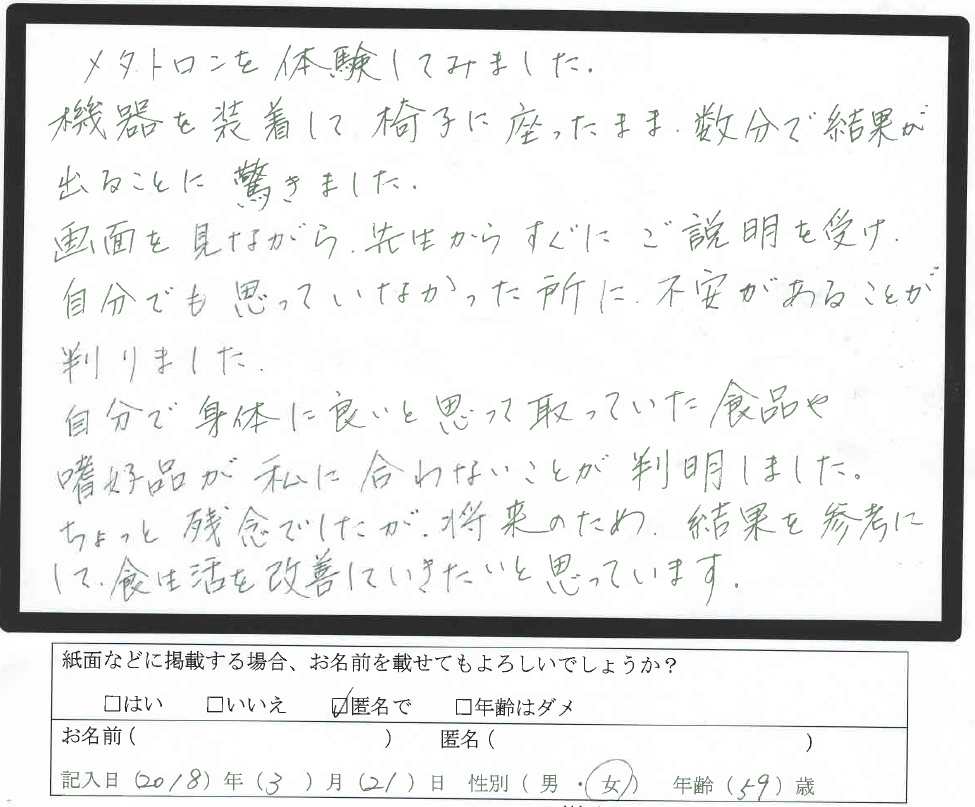 メタトロンを体験してみました.
機器を装着して、椅子に座ったまま、数分で結果が
出ることに驚きました.
画面を見ながら、先生からすぐにご説明を受け、
自分でも思っていなかった所に、不安があることが
判りました.
自分で身体に良いと思って取っていた食品や
嗜好品が私に合わないことが判明しました。
ちょっと残念でしたが、将来のため、結果を参考に
して、食生活を改善していきたいと思っています.
紙面などに掲載する場合、お名前を載せてもよろしいでしょうか？
□はい □いいえ ☑匿名で □年齢はダメ
お名前（ ） 匿名（ ）
記入日（2018）年（3）月（21）日 性別（男・女） 年齢（59）歳